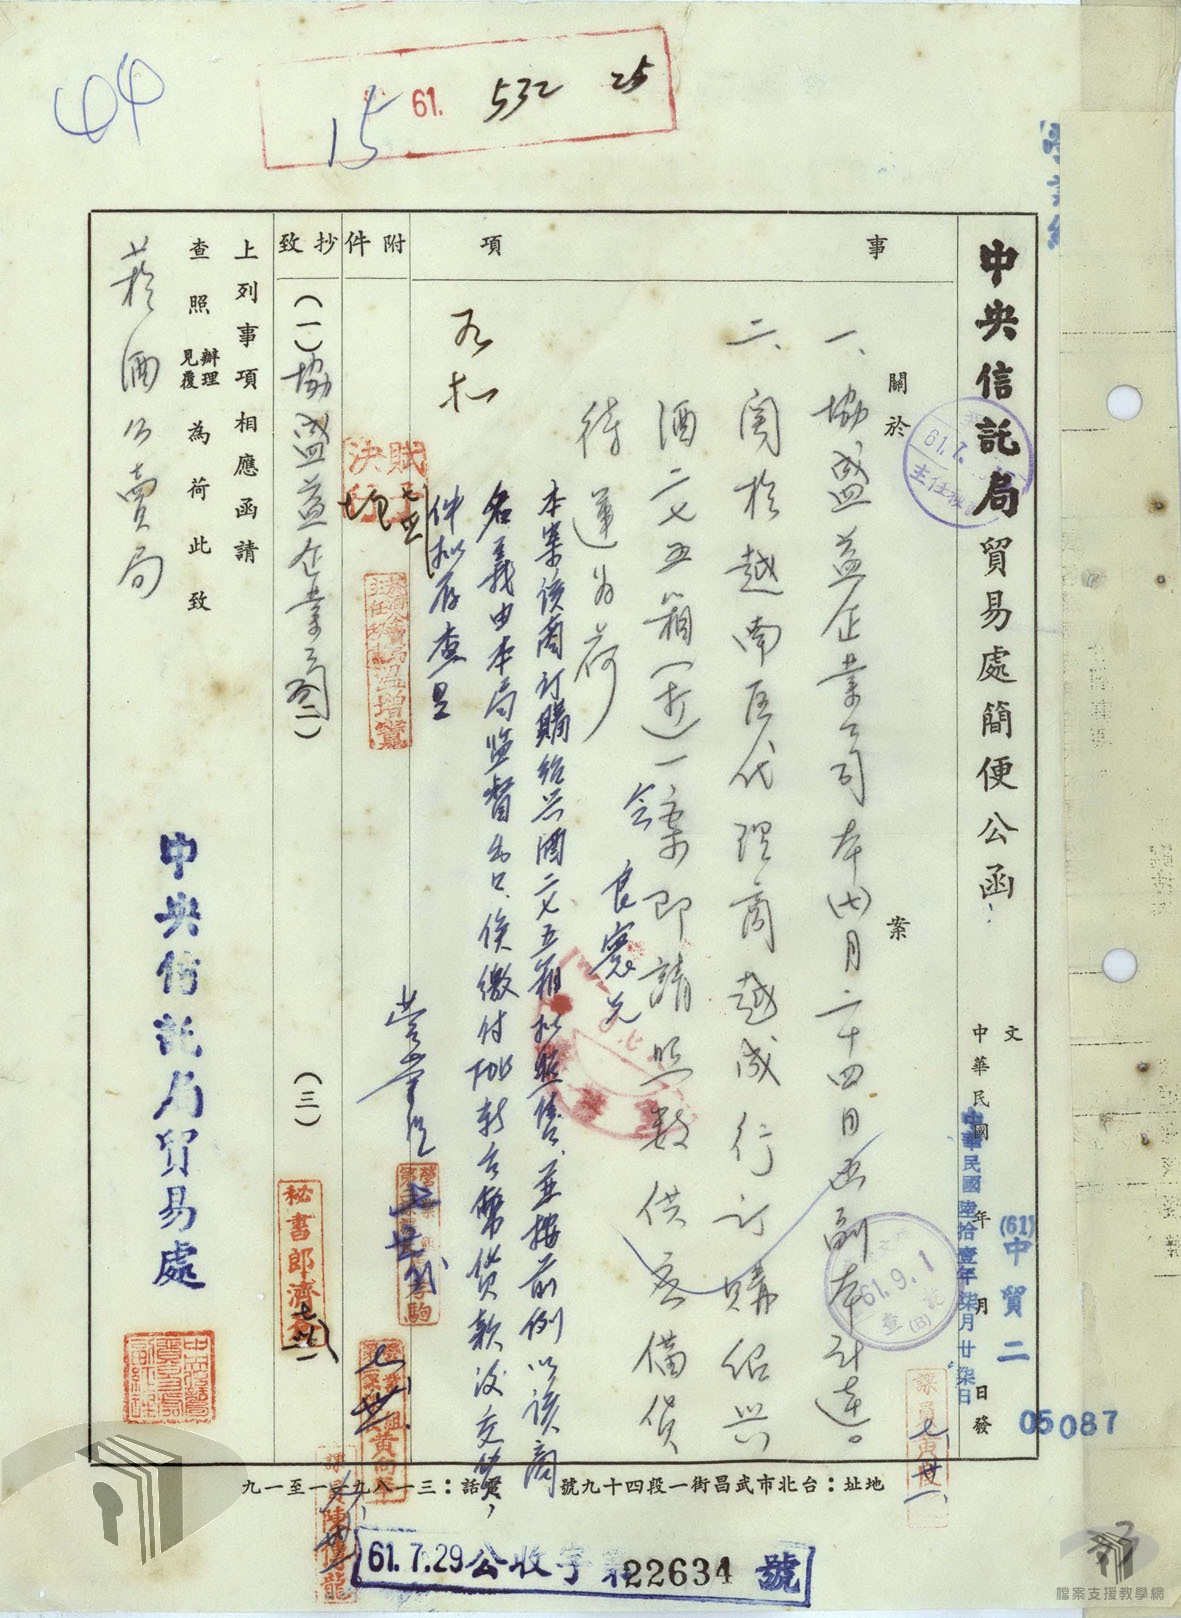 44
61. 532 25
15
中央信託局貿易處簡便公函
文
中華民國 年 月 日發
中華民國陸拾壹年柒月廿柒日
(61)中貿二
05087
事
項
附件
抄致
關於
案
一、協盛益企業公司本(七)月二十四日函副本計達。
二、關於越南區代理商越成行訂購紹興
酒二七五箱(近)一案即請照數供應備貨
待運為荷
本案該商訂購紹興酒二七五箱擬照售，並按前例以該商
名義由本局監督出口，俟繳付FOB新台幣貨款後交貨，
件擬存查
(一)協盛益企業公司(二)
(三)
上列事項相應函請
查照辦理見覆為荷此致
菸酒公賣局
中央信託局貿易處
61.7.
61.9.1
查
(B)
地址：台北市武昌街一段四十九號
電話：三一八九一一至一九
61.7.29公收字第22634號
檔案支援教學網